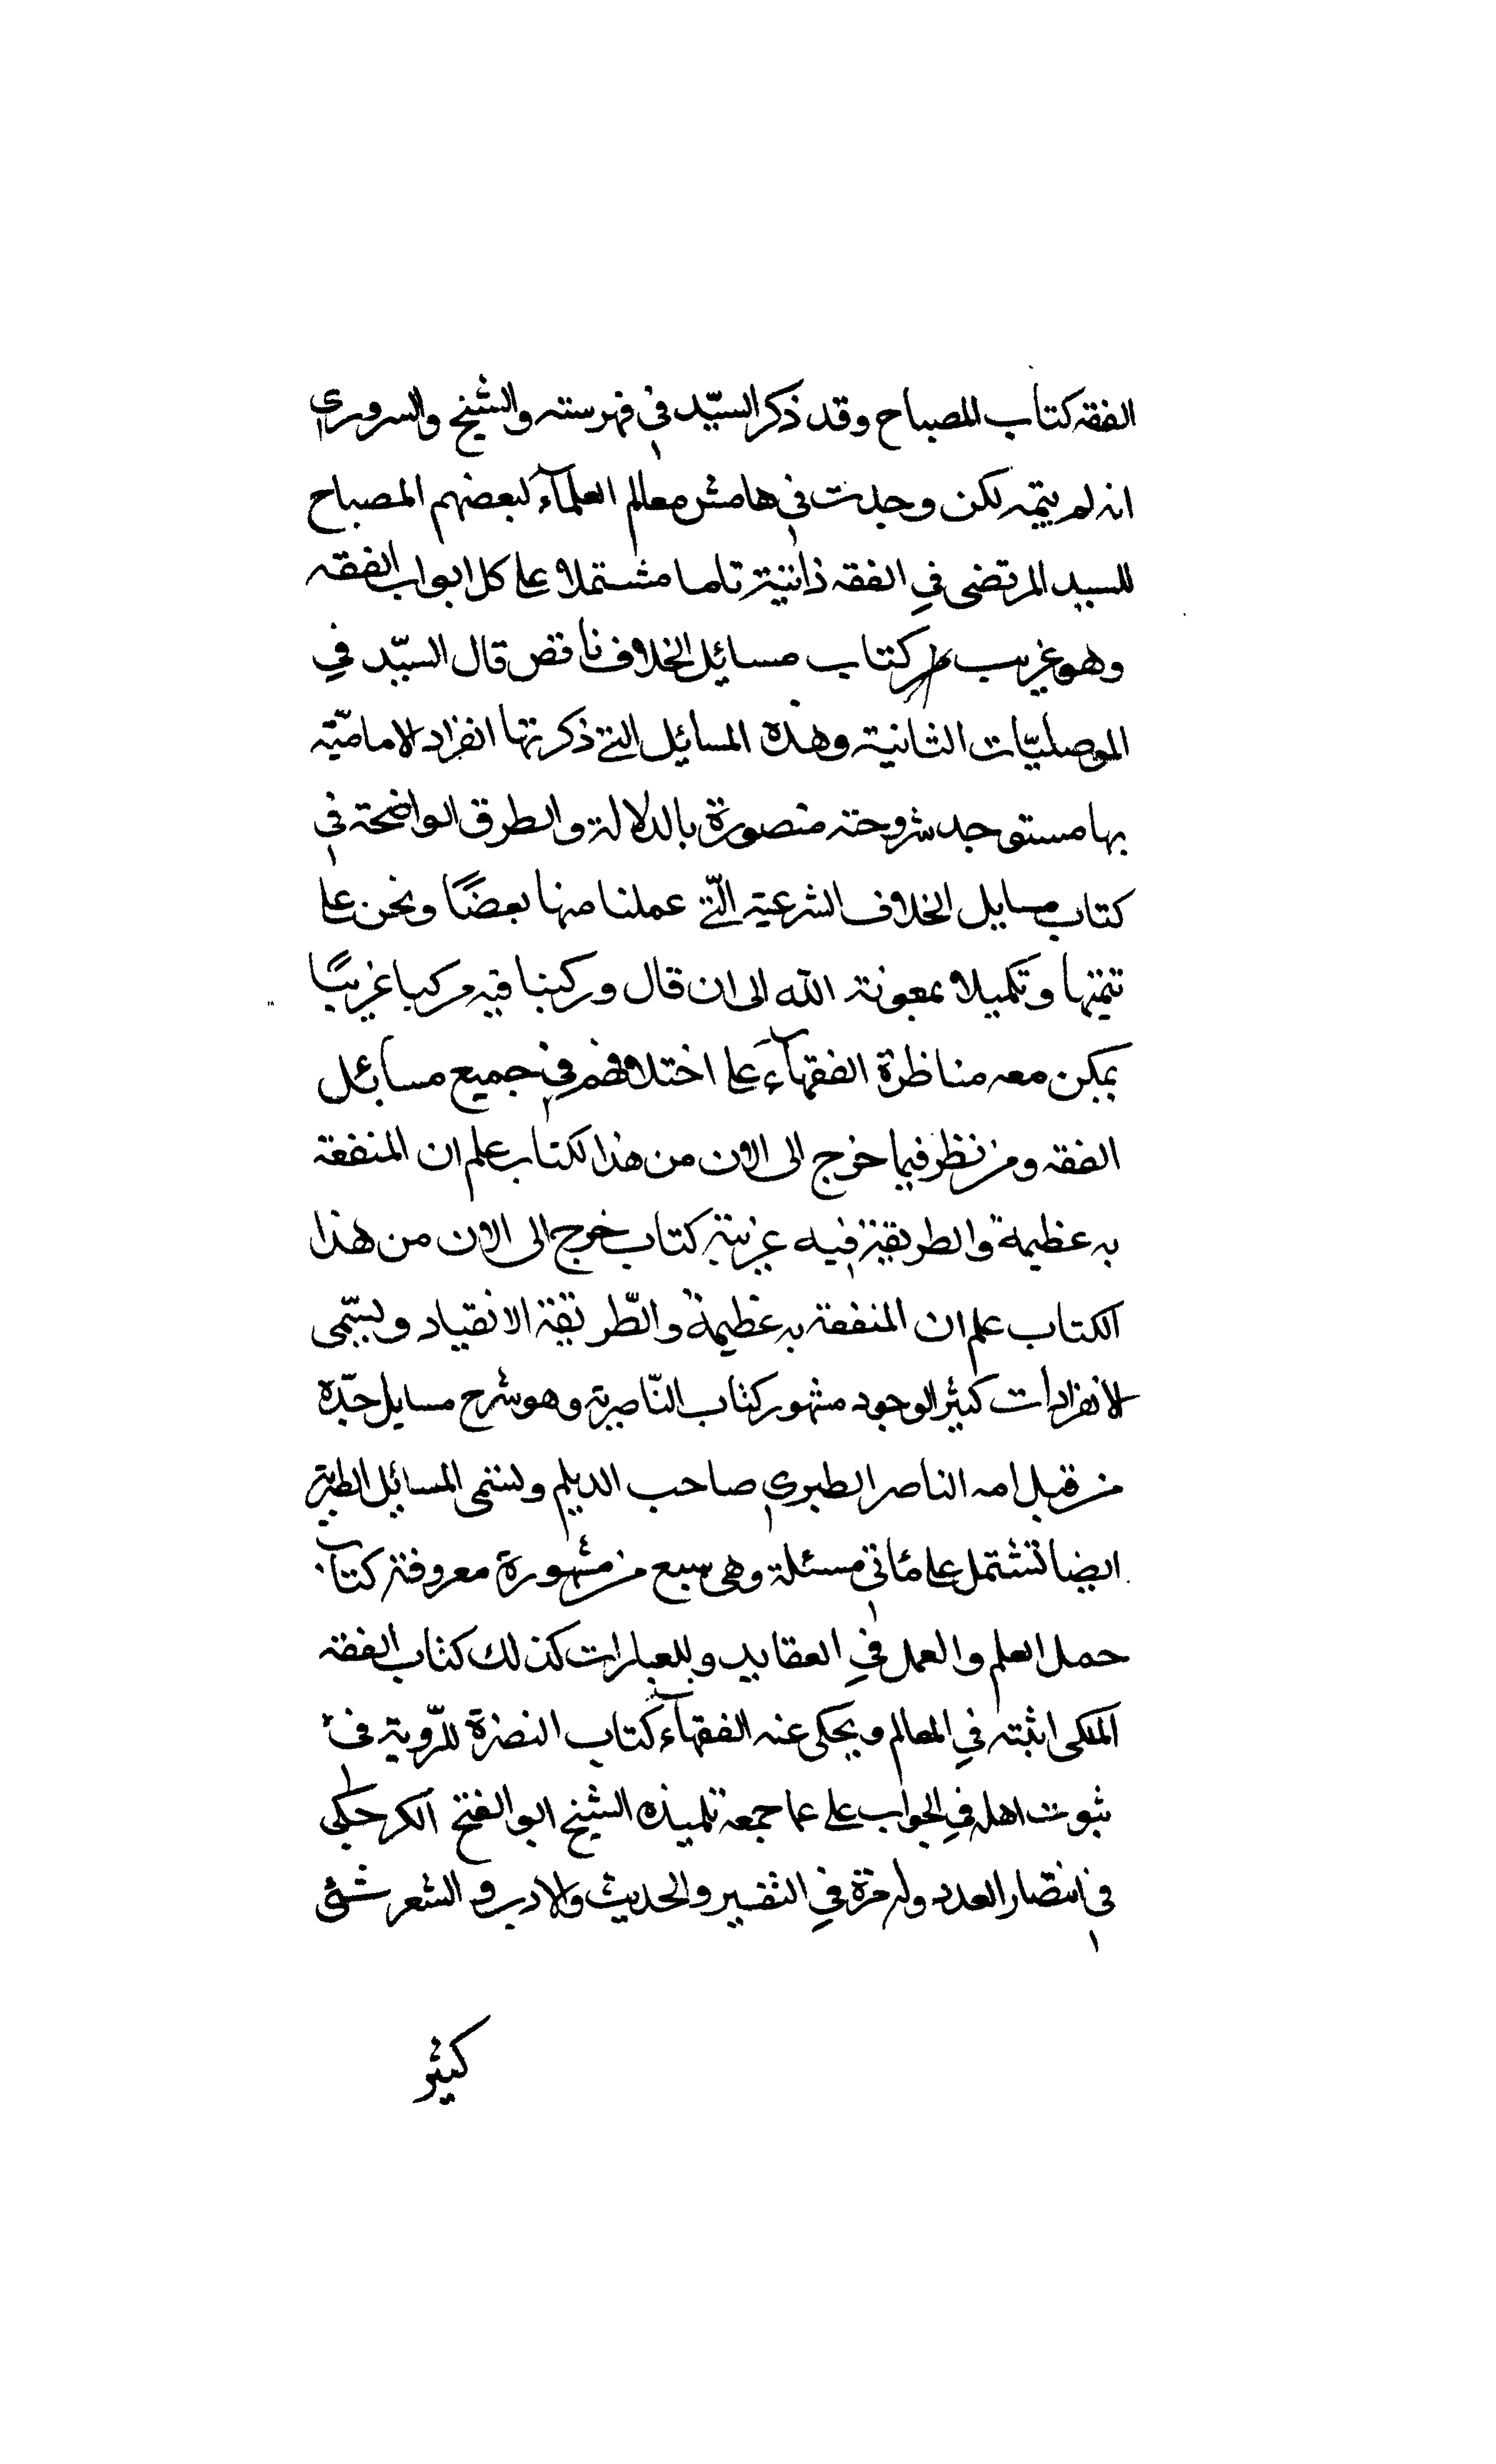 الفقه كتاب المصباح وقد ذكر السيّد في فهرسته والشيخ والسروري
انه لم يتمه لكن وجدت في هامش معالم العلمآء لبعضهم المصباح
للسيد المرتضى في الفقه ذاتية تاما مشتملا على كل ابواب الفقه
وهو غريب كتاب مسائل الخلاف ناقص قال السيّد في
الموصليّات الثانية وهذه المسائل التي ذكرتها انفراد الاماميّة
بها مستوجد شروحته منصورة بالدلالة والطرق الواضحة في
كتاب مسايل الخلاف الشرعية الّتي عملنا منها بعضًا ونحن على
تتمتها وتكميلا بمعونة الله الى ان قال وركبنا فيه مركبا غريبًا
يمكن معه مناظرة الفقهآء على اختلافهم في جميع مسائل
الفقه ومن نظر فيما خرج الى الان من هذا لكتاب علم ان المنفعة
به عظيمة والطريقة فيه غريبة كتاب خرج الى الان من هذا
الكتاب علم ان المنفعة به عظيمة والطّريقة الانقياد ويسّمى
لانفرادات كثير الوجود مشهور كتاب النّاصرية وهو شرح مسايل جدّه
من قبل امه الناصر الطبري صاحب الديلم ولستمى المسائل الطبرية
ايضا تشتمل على مأتي مسئلة وهي سبع من مشهورة معروفة كتاب
حمل العلم والعمل في العقايد وبلعبارات كذلك كتاب الفقه
الملكى اثبته في المعالم ويحكى عنه الفقهآء كتاب النضرة للرّوية في
ثبوت اهله في الجواب على عما جمعه تلميذه الشيخ ابو الفتح الكرجكى
في انتصار العدد وله مرة في التفسير والحديث والادب و الشعر شئ
كثير